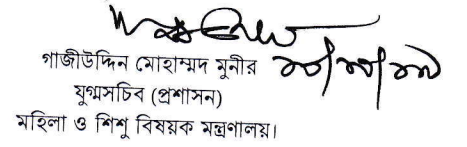 গাজীউদ্দিন মোহাম্মদ মুনীর
যুগ্মসচিব (প্রশাসন)
মহিলা ও শিশু বিষয়ক মন্ত্রণালয়।